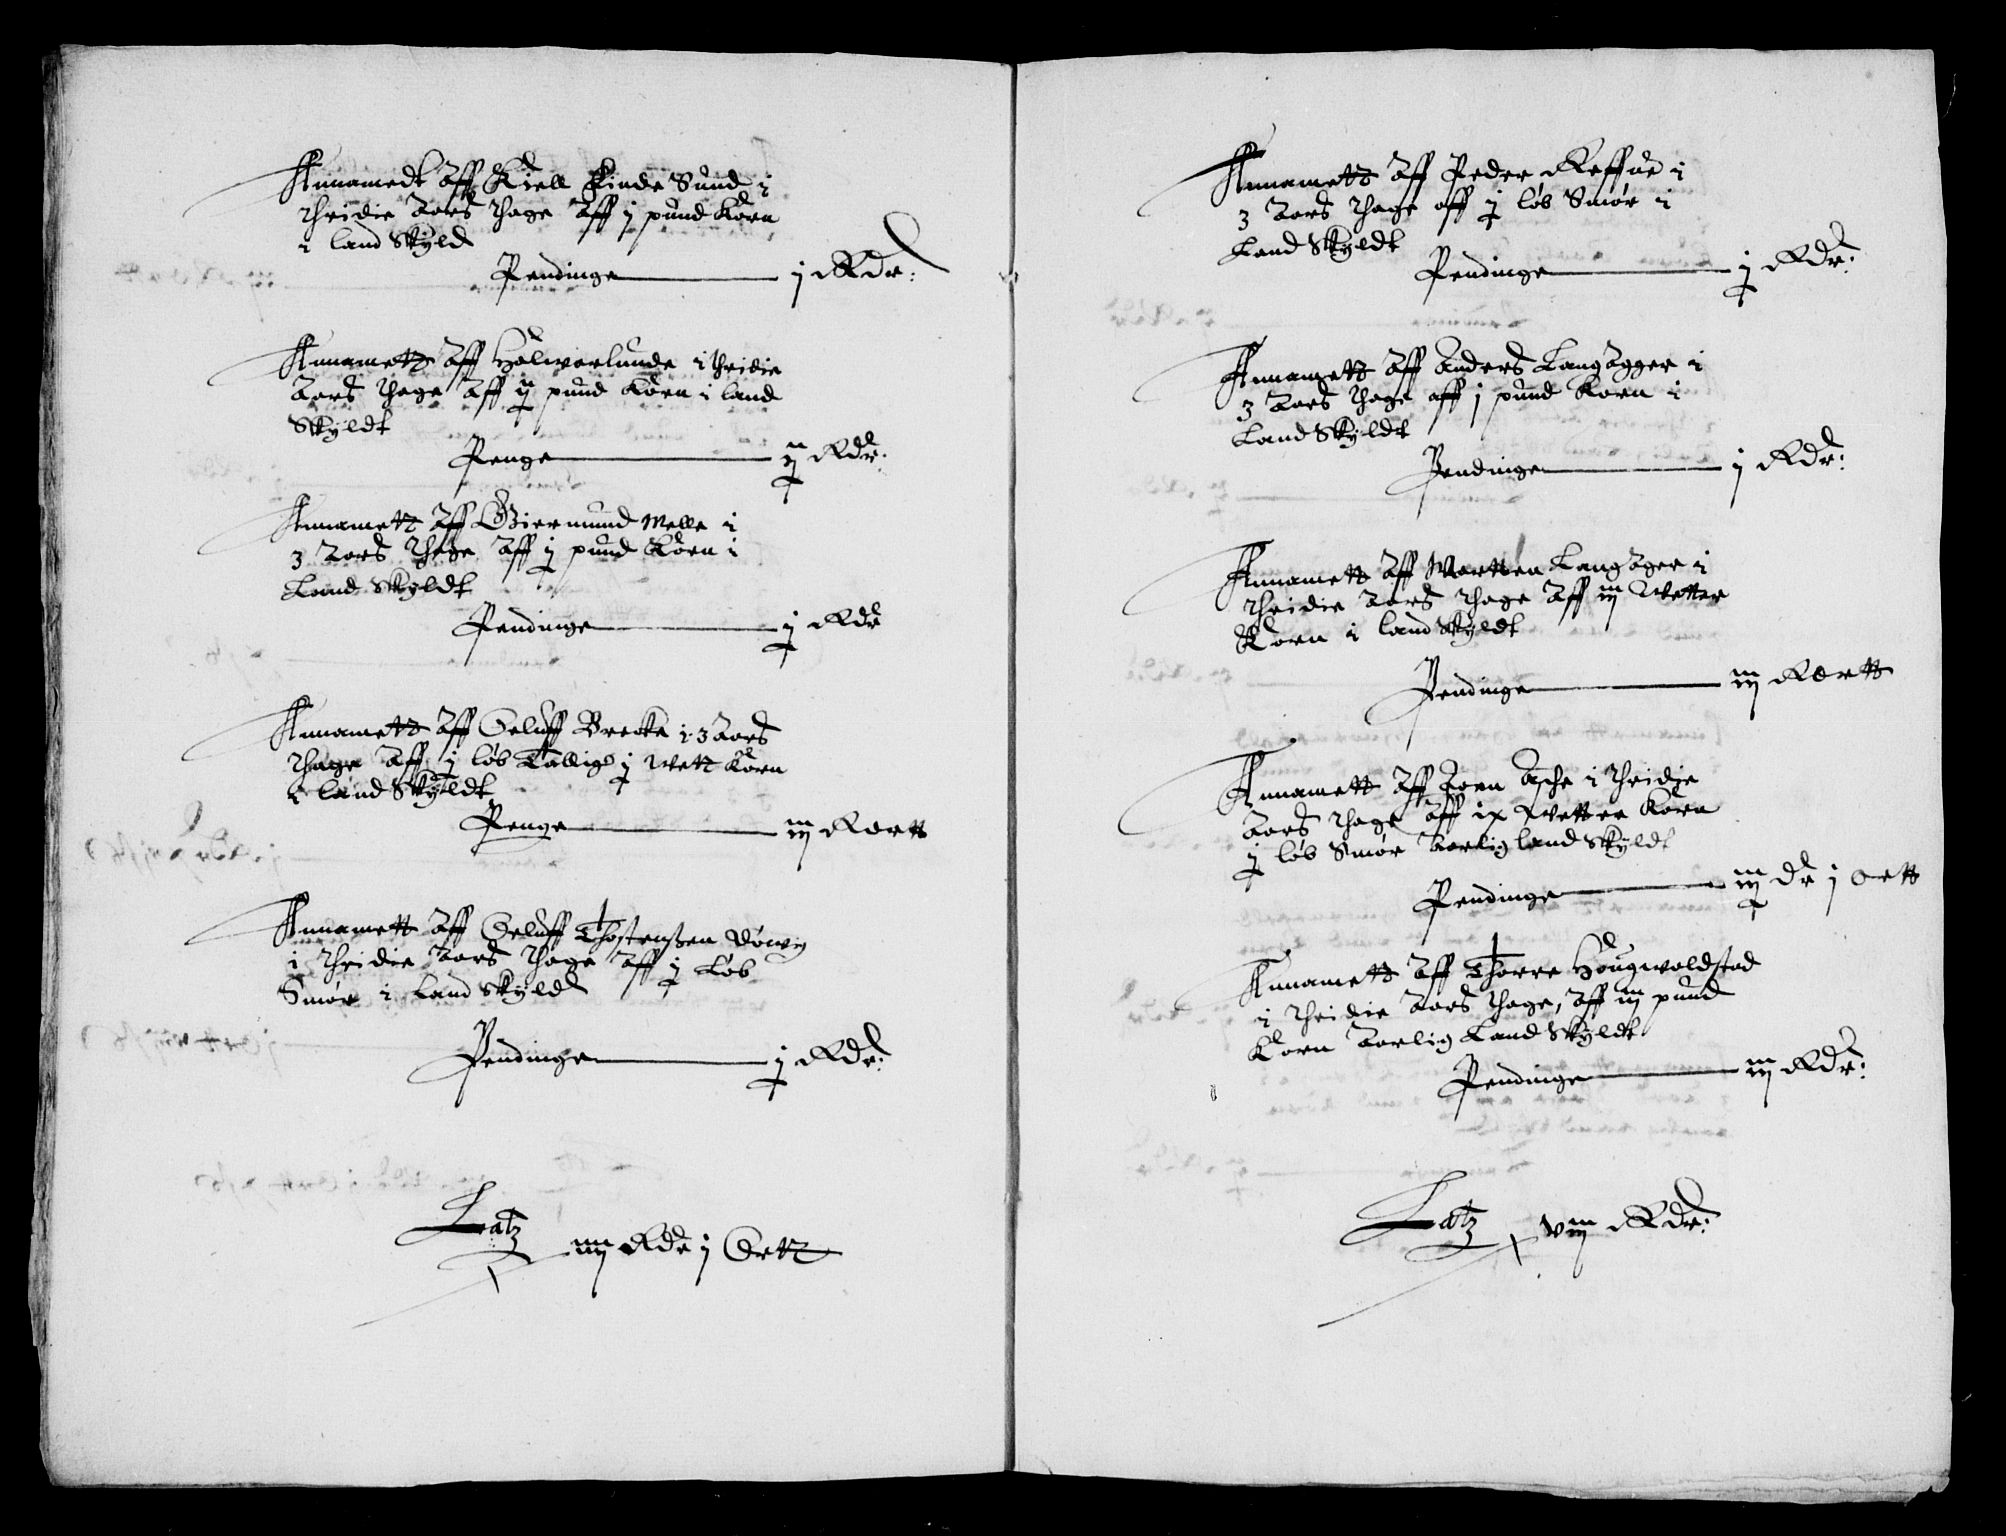 Annamedt aff Kield Linde Sund i
thridie Aars thage aff j pund Korn
i land Skyld
Pendinge j Rdr:
Annamett aff Halworlunde i thridie
Aars thage aff ij pund Korn i land
Skyldt
Penge ij Rdr:
Annamett aff Giermund Melle i
3 Aars thage aff j pund Korn i
Land Skyldt
Pendinge j Rdr
Annamett aff Oeluff Brecke i 3 Aars
thage aff j løb Tallig j wett Korn
i land Skyldt
Penge iij Roertt
Annamett aff Oeluff Thostenßen
i thridie Aars thage aff j Løb
Smør i Land Skyld
Pendinge j Rdr:
Latz iiij Rdr j Ortt
Annamett aff Peder Reffue i
3 Aars thage aff j løb Smør i
Land Skyldt
Pendinge j Rdr:
Annamett aff Anders Langager i
3 Aars thage aff j pund Korn i
Land Skyldt
Pendinge j Rdr:
Annamett aff Mortten Langager i
thridie Aars thage aff iij Wetter
Korn i land Skyldt
Pendinge iij Roertt
Annamett aff Joen Asche i thridie
Aars thage aff ix Wetter Korn
j løb Smør Aarlig land Skyldt
Pendinge iij dr j ortt
Annamett aff Thorre Hougwoldstad
i thridie Aars thage, aff iij pund
Korn Aarlig Land Skyldt
Pendinge iij Rdr:
Latz viij Rdr: